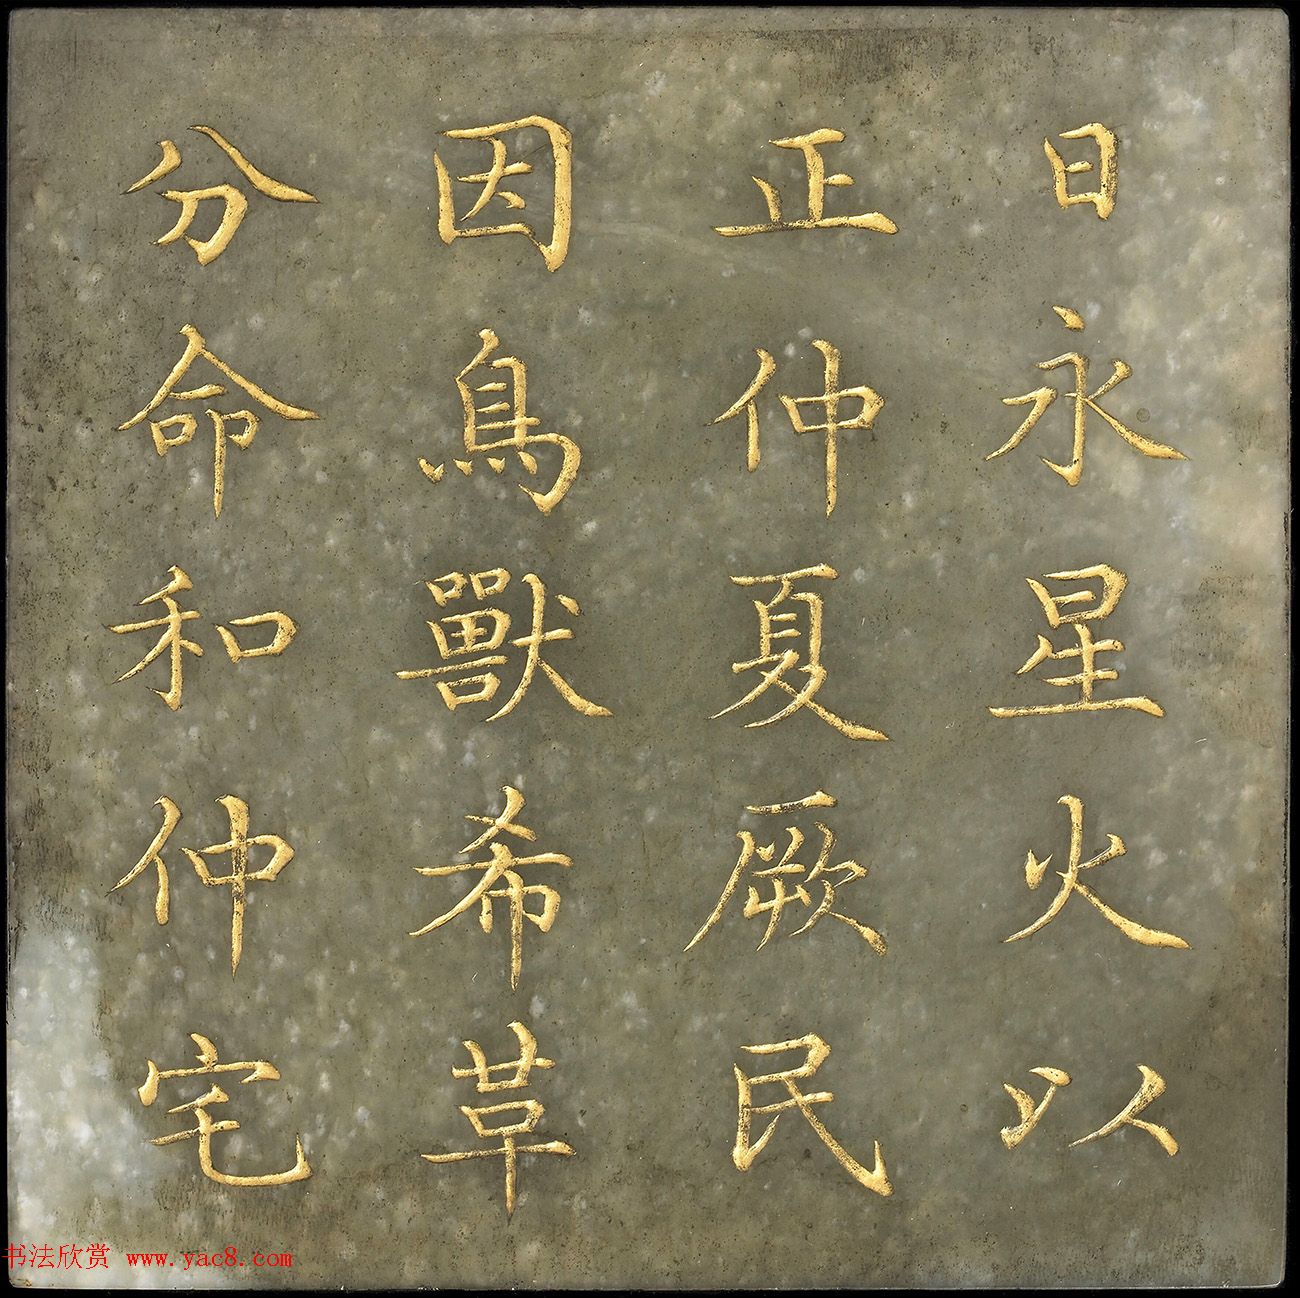 日永星火以
正仲夏厥民
因鳥獸希革
分命和仲宅
书法欣赏 www.yac8.com